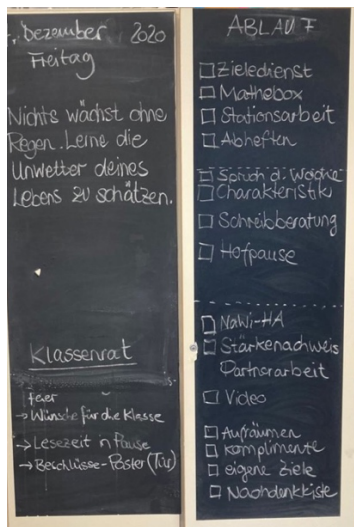 . Dezember 2020
Freitag
Nichts wächst ohne
Regen. Lerne die
Unwetter deines
Lebens zu schätzen.
Klassenrat
feier
→ Wünsche für die Klasse
→ Lesezeit n Pause
→ Beschlüsse-Poster (Tür)
ABLAUF
Zieledienst
Mathebox
Stationsarbeit
Abheften
Spruch d. Woche
Charakteristik
Schreibberatung
Hofpause
NaWi-HA
Stärkenachweis
Partnerarbeit
Video
Aufräumen
Komplimente
eigene Ziele
Nachdenkkiste